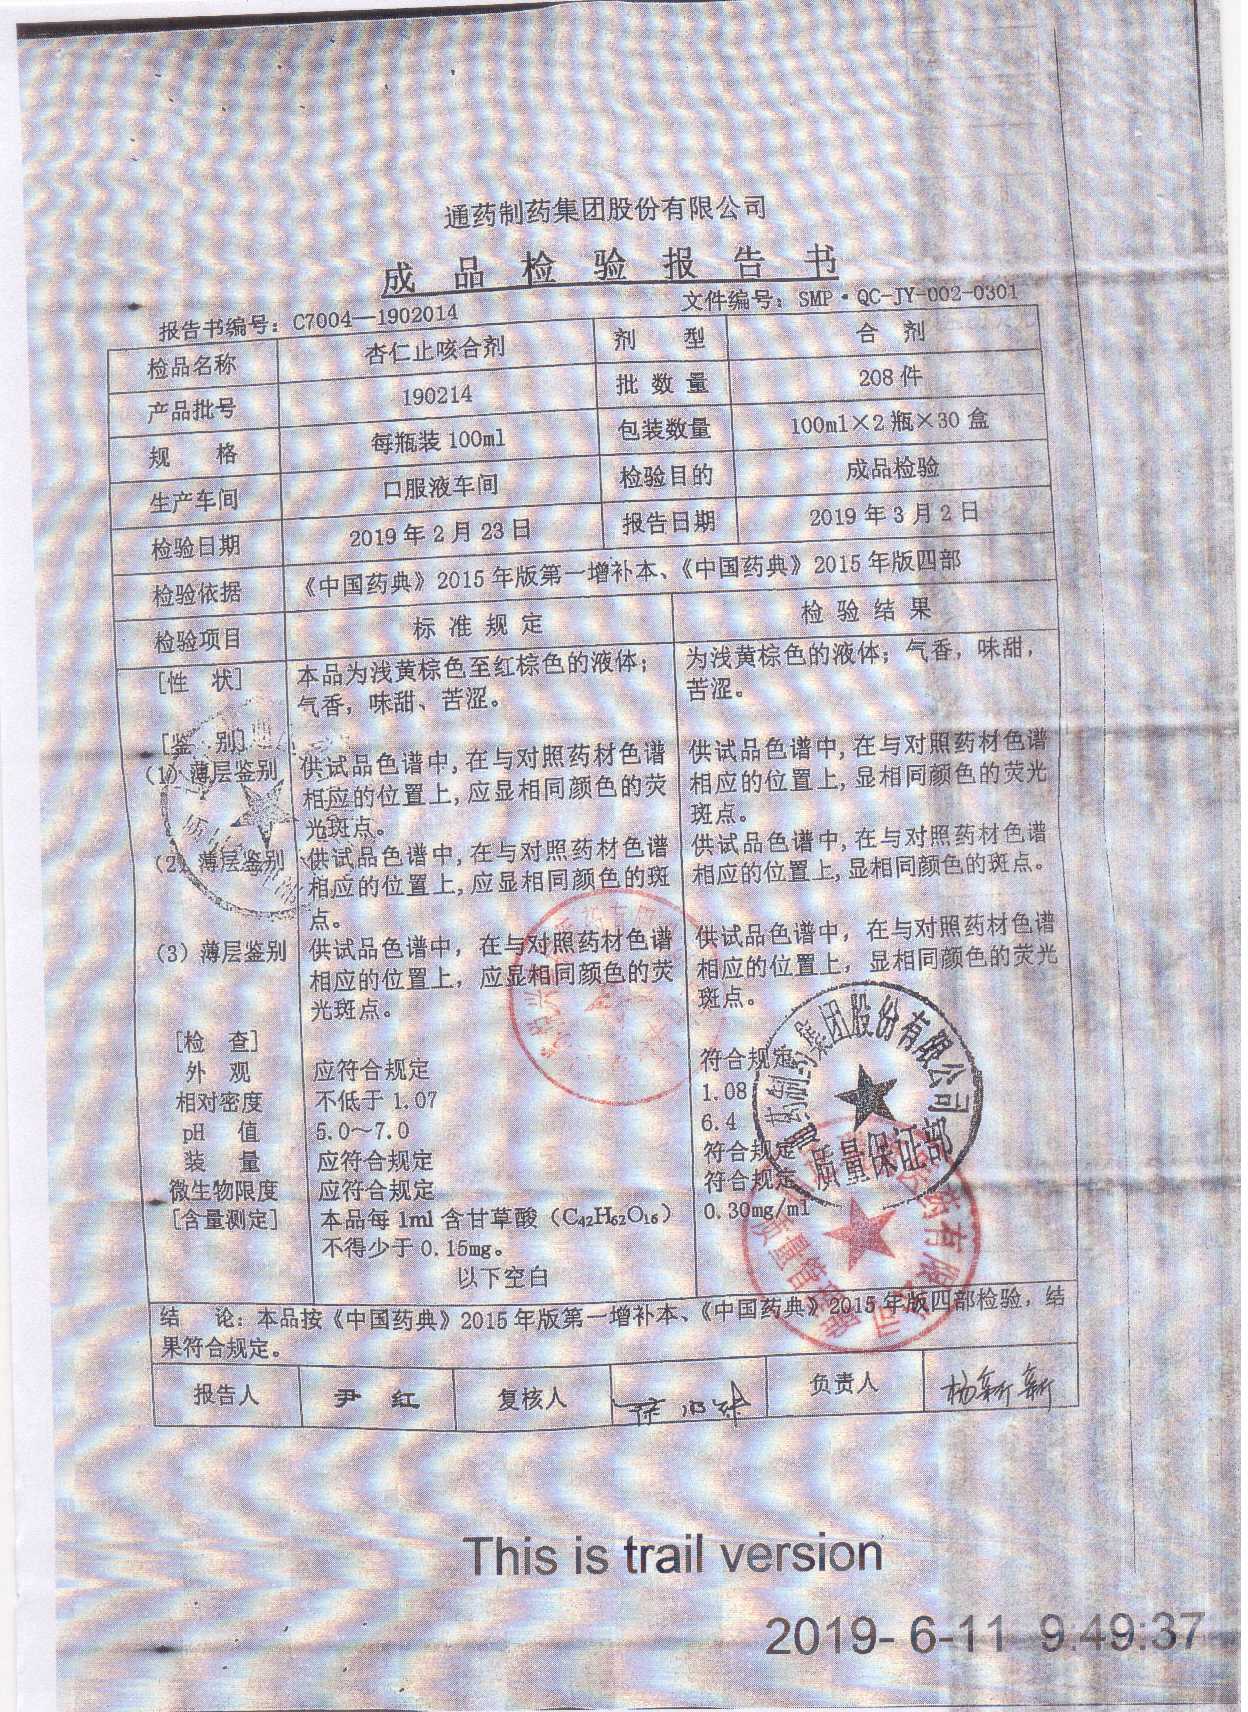 通药制药集团股份有限公司
成品检验报告书
报告书编号：C7004—1902014 文件编号：SMP·QC-JY-002-0301
检品名称 杏仁止咳合剂 剂 型 合 剂
产品批号 190214 批 数 量 208 件
规 格 每瓶装 100ml 包装数量 100ml×2 瓶×30 盒
生产车间 口服液车间 检验目的 成品检验
检验日期 2019 年 2 月 23 日 报告日期 2019 年 3 月 2 日
检验依据 《中国药典》2015 年版第一增补本、《中国药典》2015 年版四部
检验项目 标 准 规 定 检 验 结 果
[性 状] 本品为浅黄棕色至红棕色的液体； 为浅黄棕色的液体；气香，味甜，
气香，味甜、苦涩。 苦涩。
[鉴 别]
(1) 薄层鉴别 供试品色谱中，在与对照药材色谱 供试品色谱中，在与对照药材色谱
相应的位置上，应显相同颜色的荧 相应的位置上，显相同颜色的荧光
光斑点。 斑点。
(2) 薄层鉴别 供试品色谱中，在与对照药材色谱 供试品色谱中，在与对照药材色谱
相应的位置上，应显相同颜色的斑 相应的位置上，显相同颜色的斑点。
点。
(3) 薄层鉴别 供试品色谱中，在与对照药材色谱 供试品色谱中，在与对照药材色谱
相应的位置上，应显相同颜色的荧 相应的位置上，显相同颜色的荧光
光斑点。 斑点。
[检 查]
外 观 应符合规定 符合规定
相对密度 不低于 1.07 1.08
pH 值 5.0～7.0 6.4
装 量 应符合规定 符合规定
微生物限度 应符合规定 符合规定
[含量测定] 本品每 1ml 含甘草酸（C₄₂H₆₂O₁₆） 0.30mg/ml
不得少于 0.15mg。
以下空白
通药制药集团股份有限公司
质量保证部
药有限公司
质量管理部
结 论：本品按《中国药典》2015 年版第一增补本、《中国药典》2015 年版四部检验，结
果符合规定。
报告人 尹 红 复核人 负责人 杨新新
This is trail version
2019- 6-11 9:49:37